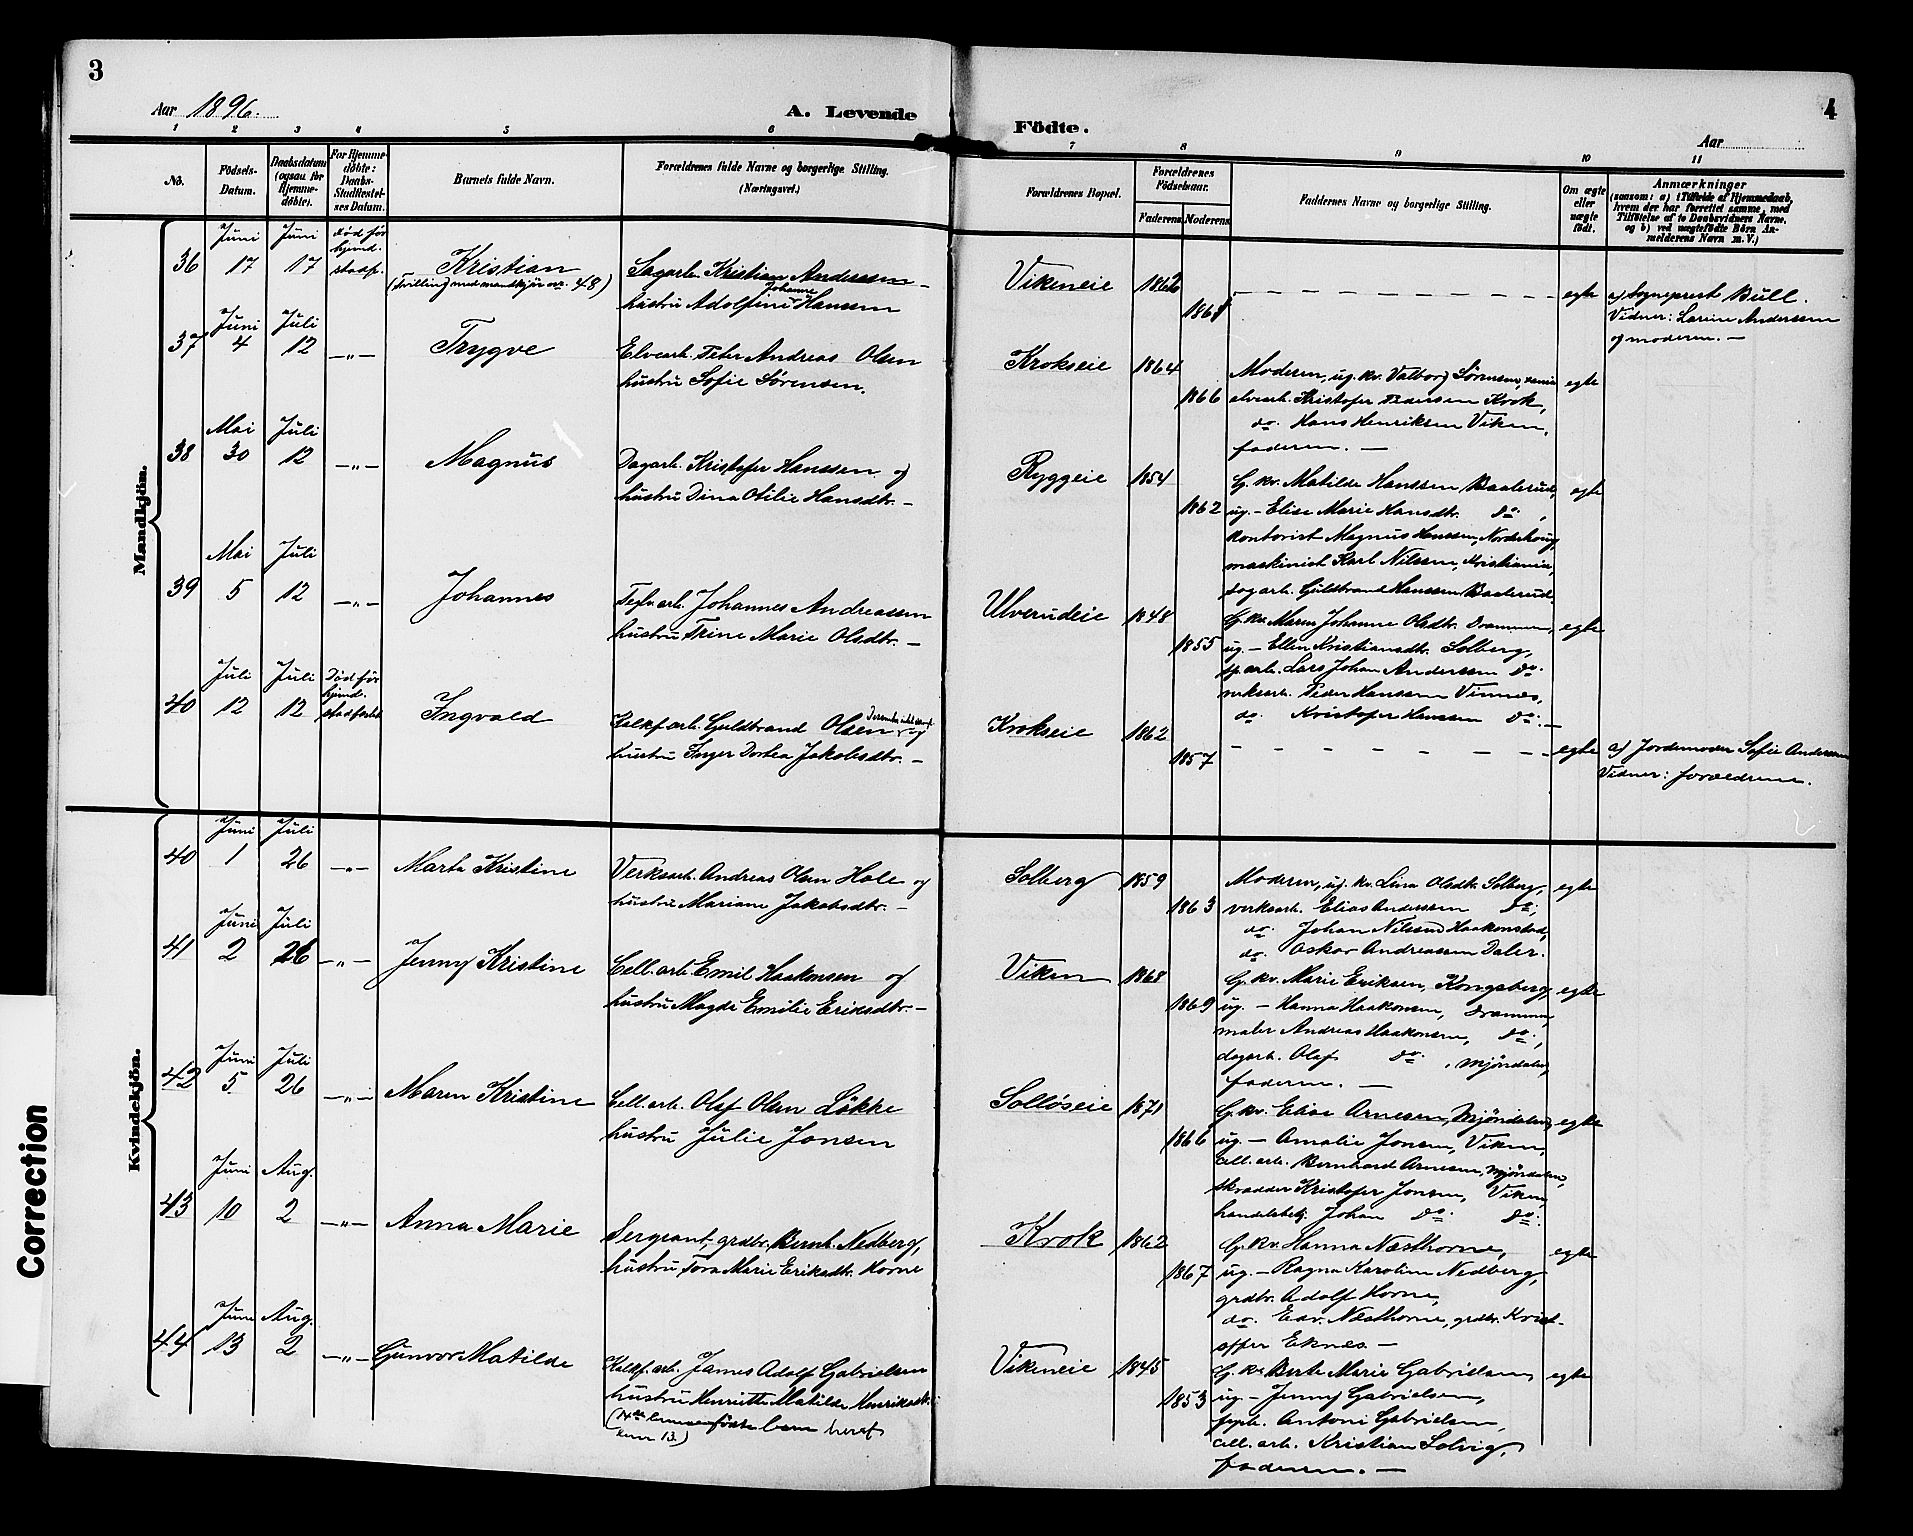 3
4
Aar 1896.
A. Levende
Födte.
Aar
1 2 3 4 5 6 7 8 9 10 11
No.
Födsels-Datum.
Daabsdatum (ogsaa for Hjemme-döbte).
For Hjemme-döbte: Daabs-Stadfæstel-ses Datum.
Barnets fulde Navn.
Forældrenes fulde Navne og borgerlige Stilling.
(Næringsvei.)
Forældrenes Bopæl.
Forældrenes Födselsaar.
Faderens Moderens
Faddernes Navne og borgerlige Stilling.
Om ægte eller uægte födt.
Anmærkninger
(saasom: a) i Tilfælde af Hjemmedaab, hvem der har forrettet samme, med Tilföielse af to Daabsvidners Navne, og b) ved uægtefödte Börn Anmelderens Navn m. V.)
Mandkjön.
36 Juni 17 Juni 17 død før hjemd. stadf.
Kristian
(Trilling med mandkjön nr. 48)
Sagarb. Kristian Anderssen
hustru Adolfine Johanne Hansen
Vikeneie 1862 1861
egte
a) Sogneprest Bull.
Vidner: Larine Anderssen
og moderen. —
37 Juni 4 Juli 12 —„—
Trygve
Elvearb. Peter Andreas Olsen
hustru Sofie Sørensen.
Krokseie 1864 1866
Moderen, ug. kv. Valborg Sørensen,
elvearb. Kristofer Pedersen Krok,
do. Hans Henriksen Viken,
faderen. —
egte
38 Mai 30 Juli 12 —„—
Magnus
Dagarb. Kristofer Hanssen og
hustru Dina Otilie Hansdtr. —
Ryggeie 1854 1862
G. kv. Matilde Hanssen Baalerud,
ug. — Elise Marie Hansdtr. do.,
kontorist Magnus Hanssen, Norderhoug,
maskinist Karl Nilssen, Kristiania,
dagarb. Guldbrand Hanssen Baalerud.
egte
39 Mai 5 Juli 12 —„—
Johannes
Teglv.arb. Johannes Andreassen
hustru Trine Marie Olsdtr. —
Ulverudeie 1848 1855
G. kv. Maren Johanne Olsdtr. Drammen,
ug. — Ellen Kristiansdtr. Solberg,
sp.arb. Lars Johan Anderssen do.
verksarb. Peder Hanssen Vinnes,
do. Kristofer Hanssen do. —
egte
40 Juli 12 Juli 12 Død før hjemd. stadfæstet
Ingvald
Kalkf.arb. Guldbrand Olsen og
hustru Inger Dortea Jakobsdtr. —
Krokseie 1862 1857
egte
a) Jordemoder Sofie Anderssen
Vidner: forældrene.
Kvindekjön.
40 Juni 1 Juli 26 —„—
Marta Kristine
Verksarb. Andreas Olsen Hole og
hustru Mariane Jakobsdtr. —
Solberg 1859 1863
Moderen, ug. kv. Lina Olsdtr. Solberg,
verksarb. Elias Anderssen do.,
do. Johan Nilssen Haakonstad,
do. Oskar Andreassen Daler.
egte
41 Juni 2 Juli 26 —„—
Jenny Kristine
Cell.arb. Emil Haakonsen og
hustru Magda Emilie Eriksdtr. —
Viken 1868 1869
G. kv. Marie Eriksen, Kongsberg,
ug. — Hanna Haakonsen, Drammen,
maler Andreas Haakonsen, do.,
dagarb. Olaf do., Mjøndalen,
faderen. —
egte
42 Juni 5 Juli 26 —„—
Maren Kristine
Cell.arb. Olaf Olsen Løkke
hustru Julie Jonsen
Solløseie 1871 1866
G. kv. Elise Arnesen, Mjøndalen,
ug. — Amalie Jonsen, Viken,
cell. arb. Bernhard Arnesen, Mjøndalen,
skrædder Kristofer Jonsen, Viken,
handelsbetj. Johan do. do.
egte
43 Juni 10 Aug. 2 —„—
Anna Marie
Sergeant, grdbr. Bernh. Nedberg,
hustru Tora Marie Eriksdtr. Horne
Krok 1862 1867
G. kv. Hanna Næsthorne,
ug. — Ragna Karoline Nedberg,
grdbr. Adolf Horne,
do. Edv. Næsthorne, grdbr. Krist-
offer Eknes —
egte
44 Juni 13 Aug. 2 —„—
Gunvor Matilde
Kalkf. arb. James Adolf Gabrielsen
hustru Henriette Matilde Henriksdtr.
Vikeneie 1845 1853
G. kv. Berte Marie Gabrielsen,
ug. — Jenny Gabrielsen,
Antoni Gabrielsen,
cell. arb. Kristian Solvig,
faderen. —
egte
Correction